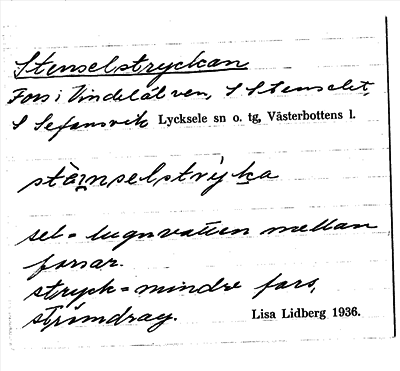 Stenselstryckan
Fors i Vindelälven, S Stenselet,
S Sefansvik Lycksele sn o. tg, Västerbottens l.
stäinselstrýka
sel = lugnvatten mellan
forsar.
stryck = mindre fors,
strömdrag.
Lisa Lidberg 1936.